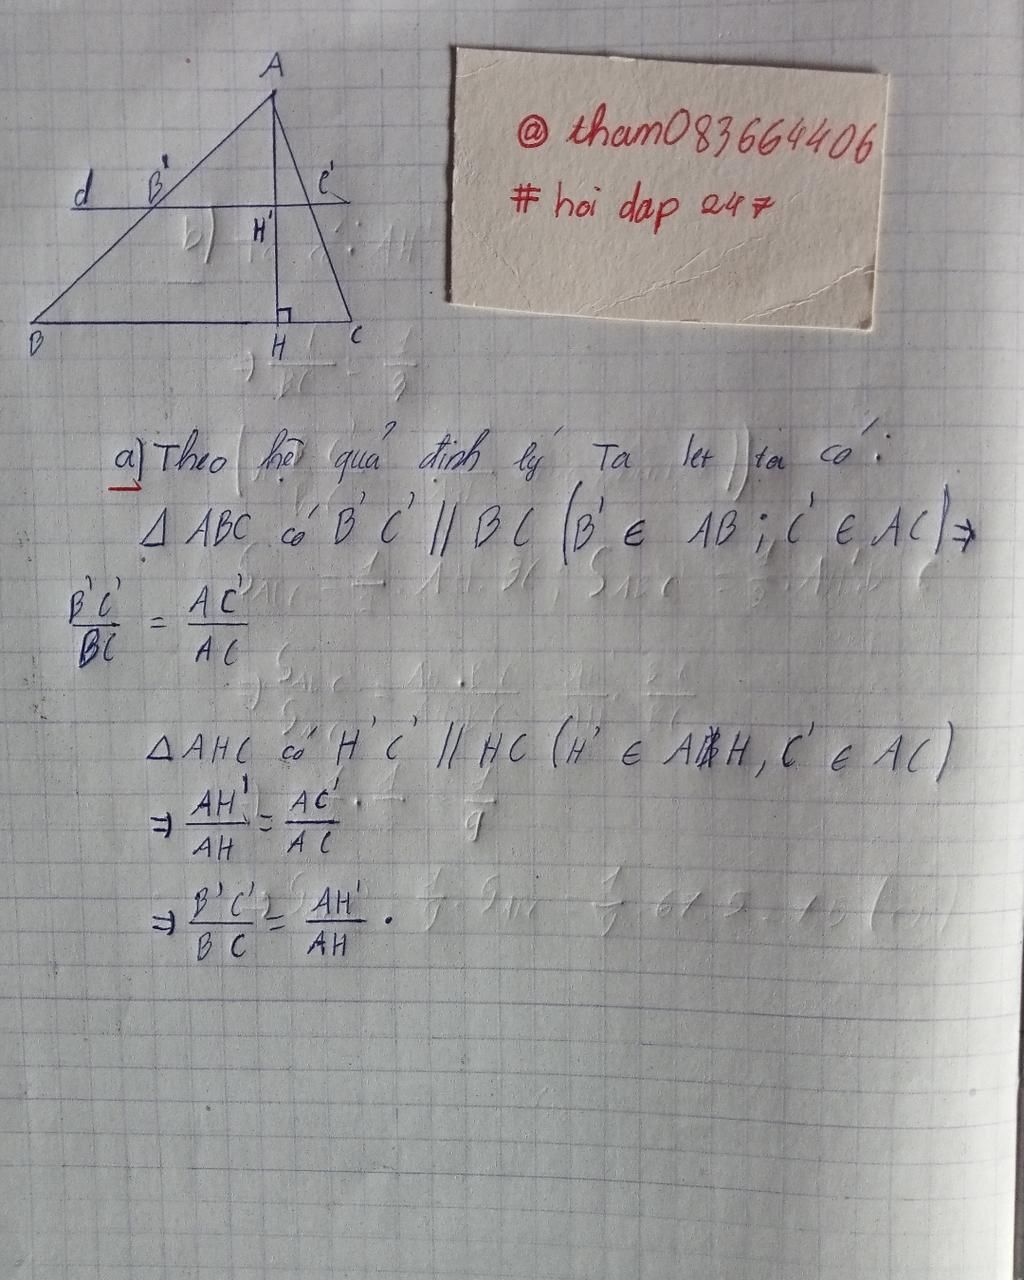 A
@ tham083664406
d B' C'
# hoi dap 247
H'
B H C
a) Theo (hệ quả định lý Ta let) ta có:
Δ ABC có B'C' // BC (B' ∈ AB ; C' ∈ AC) ⇒
B'C'/BC = AC'/AC
Δ AHC có H'C' // HC (H' ∈ AH, C' ∈ AC)
⇒ AH'/AH = AC'/AC
⇒ B'C'/BC = AH'/AH .